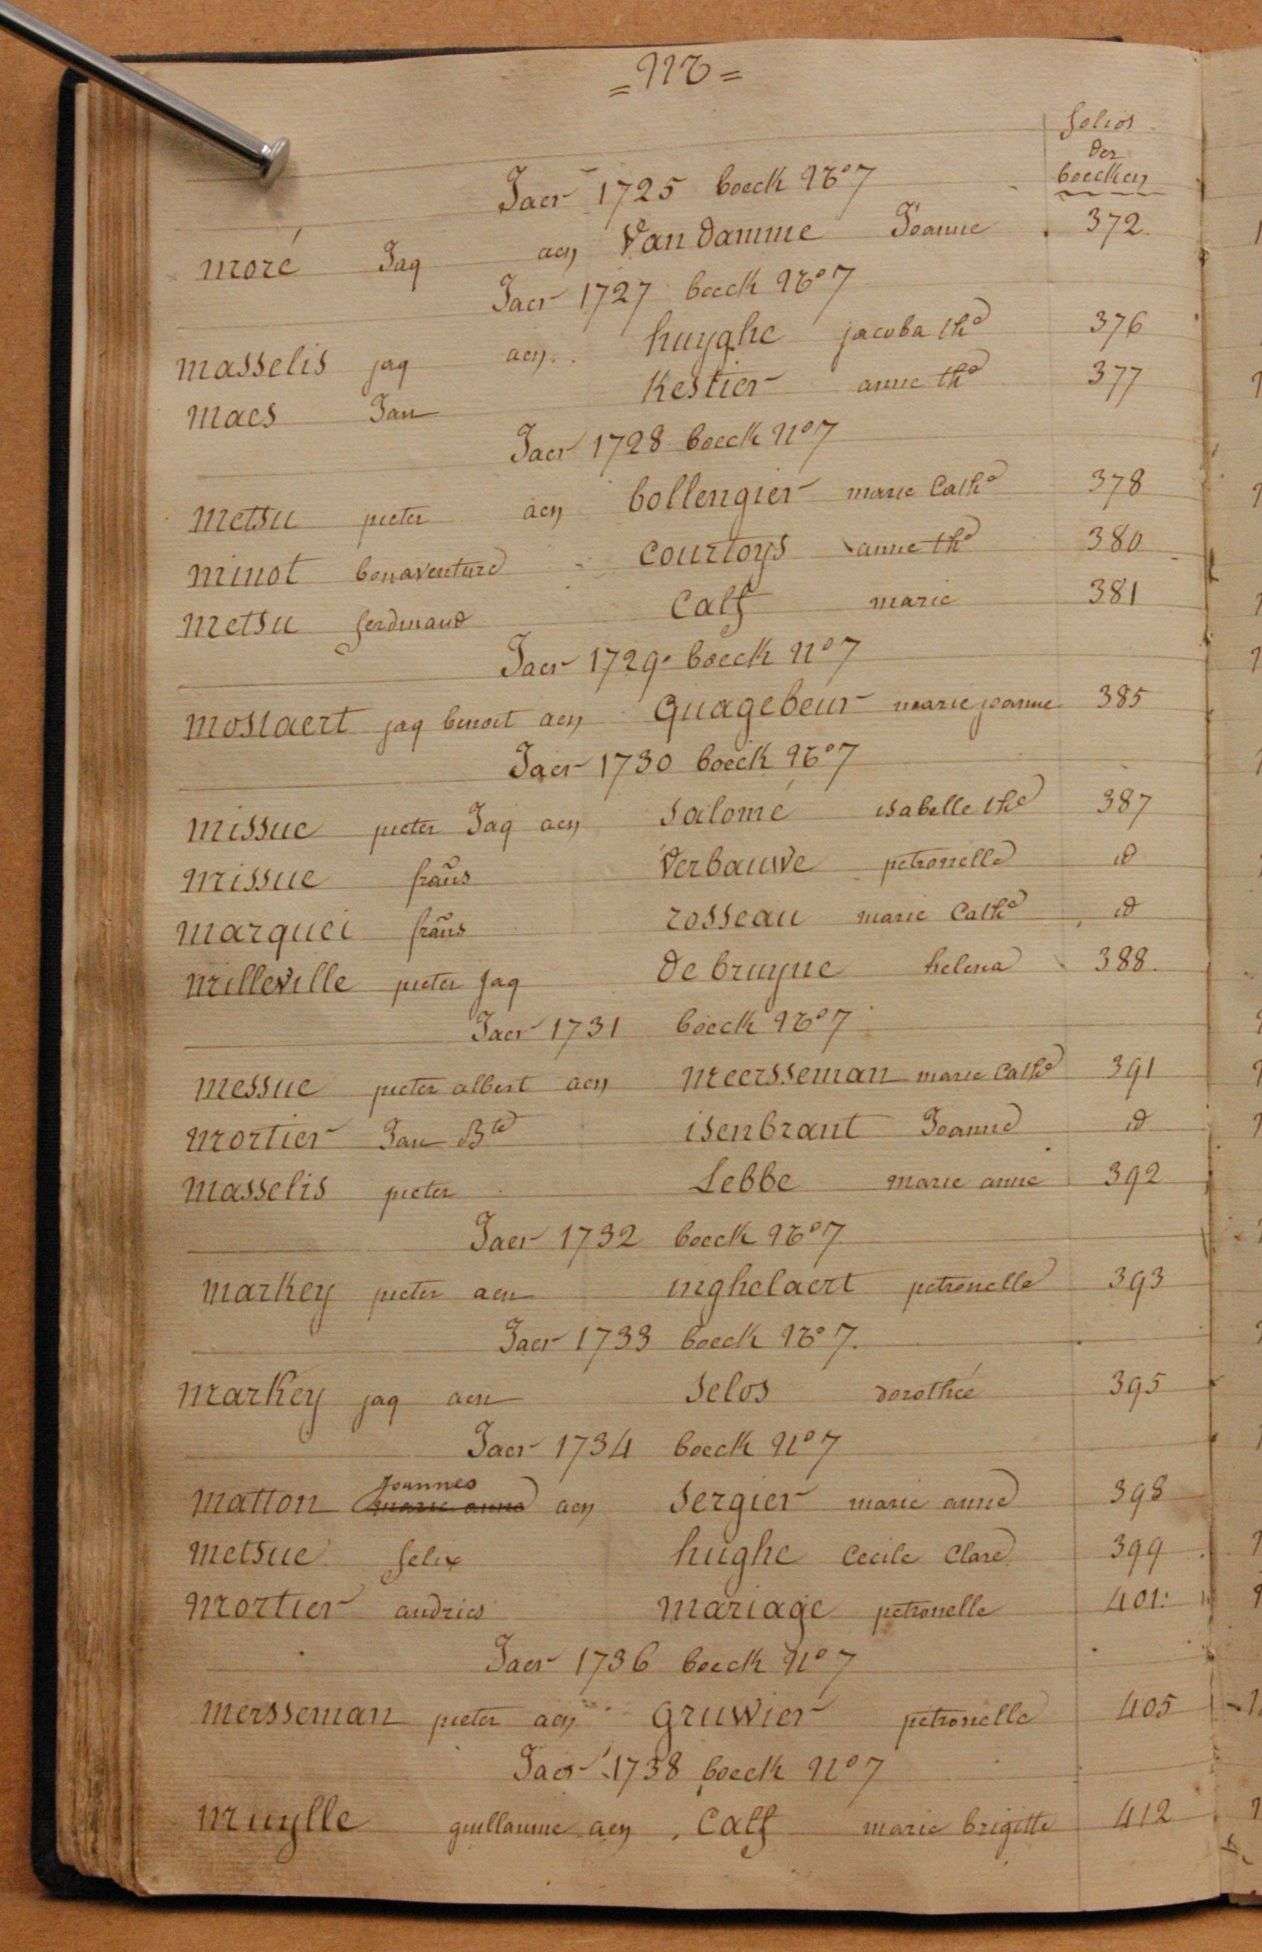 = M =
folios
der
boecken
Jaer 1725 boeck No 7
moré Jaq aen Van damme Joanne 372
Jaer 1727 boeck No 7
masselis jaq aen huyghe jacoba thᵉ 376
maes Jan Kestier anne thᵉ 377
Jaer 1728 boeck No 7
metsu pieter aen bollengier marie Cathᵉ 378
minot bonaventure courtoys anne thᵉ 380
metsu ferdinand Calf marie 381
Jaer 1729 boeck No 7
mostaert jaq benoit aen quagebeur marie joanne 385
Jaer 1730 boeck No 7
missue pieter Jaq aen salomé isabelle thᵉ 387
missue frañs verbauwe petronelle id
marquei frañs rosseau marie Cathᵉ id
milleville pieter jaq de bruyne helena 388
Jaer 1731 boeck No 7
messue pieter albert aen meersseman marie Cathᵉ 391
mortier Jan Bte isenbrant Joanne id
masselis pieter Lebbe marie anne 392
Jaer 1732 boeck No 7
markey pieter aen inghelaert petronelle 393
Jaer 1733 boeck No 7.
markey jaq aen selos dorothée 395
Jaer 1734 boeck No 7
matton Joannes marie anne aen sergier marie anne 398
metsue felix hughe Cecile Clare 399
mortier andries mariage petronelle 401
Jaer 1736 boeck No 7
mersseman pieter aen gruwier petronelle 405
Jaer 1738 boeck No 7
muylle guillaume aen Calf marie brigitte 412